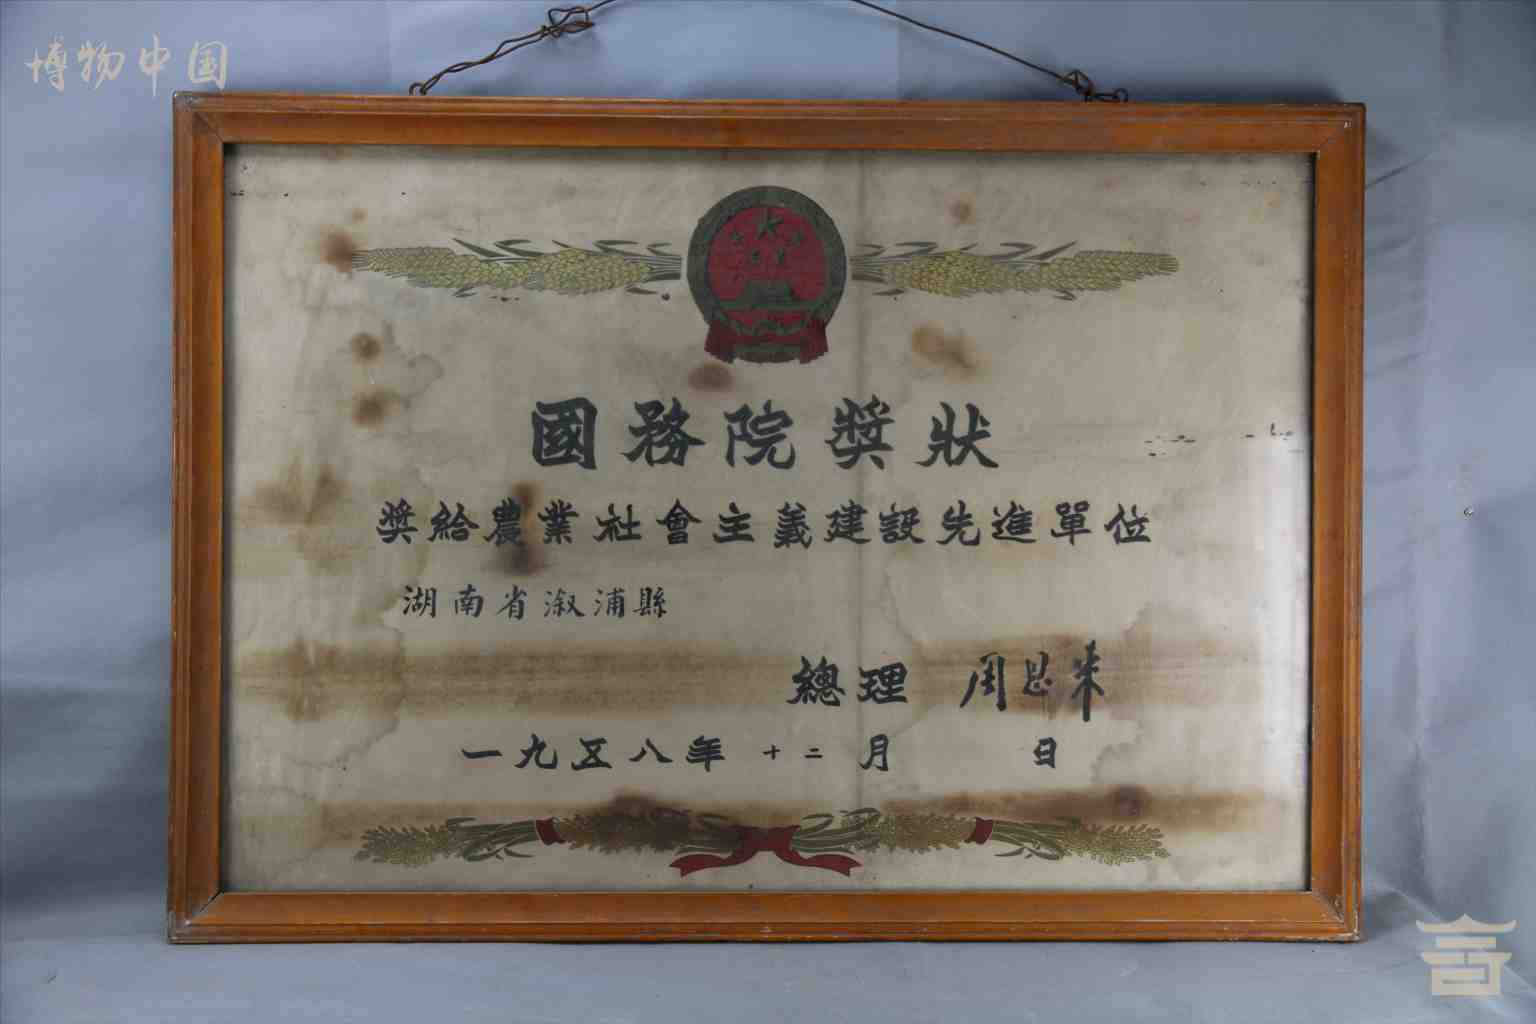 博物中国
國務院獎狀
獎給農業社會主義建設先進單位
湖南省溆浦縣
總理 周恩来
一九五八年 十二月 日